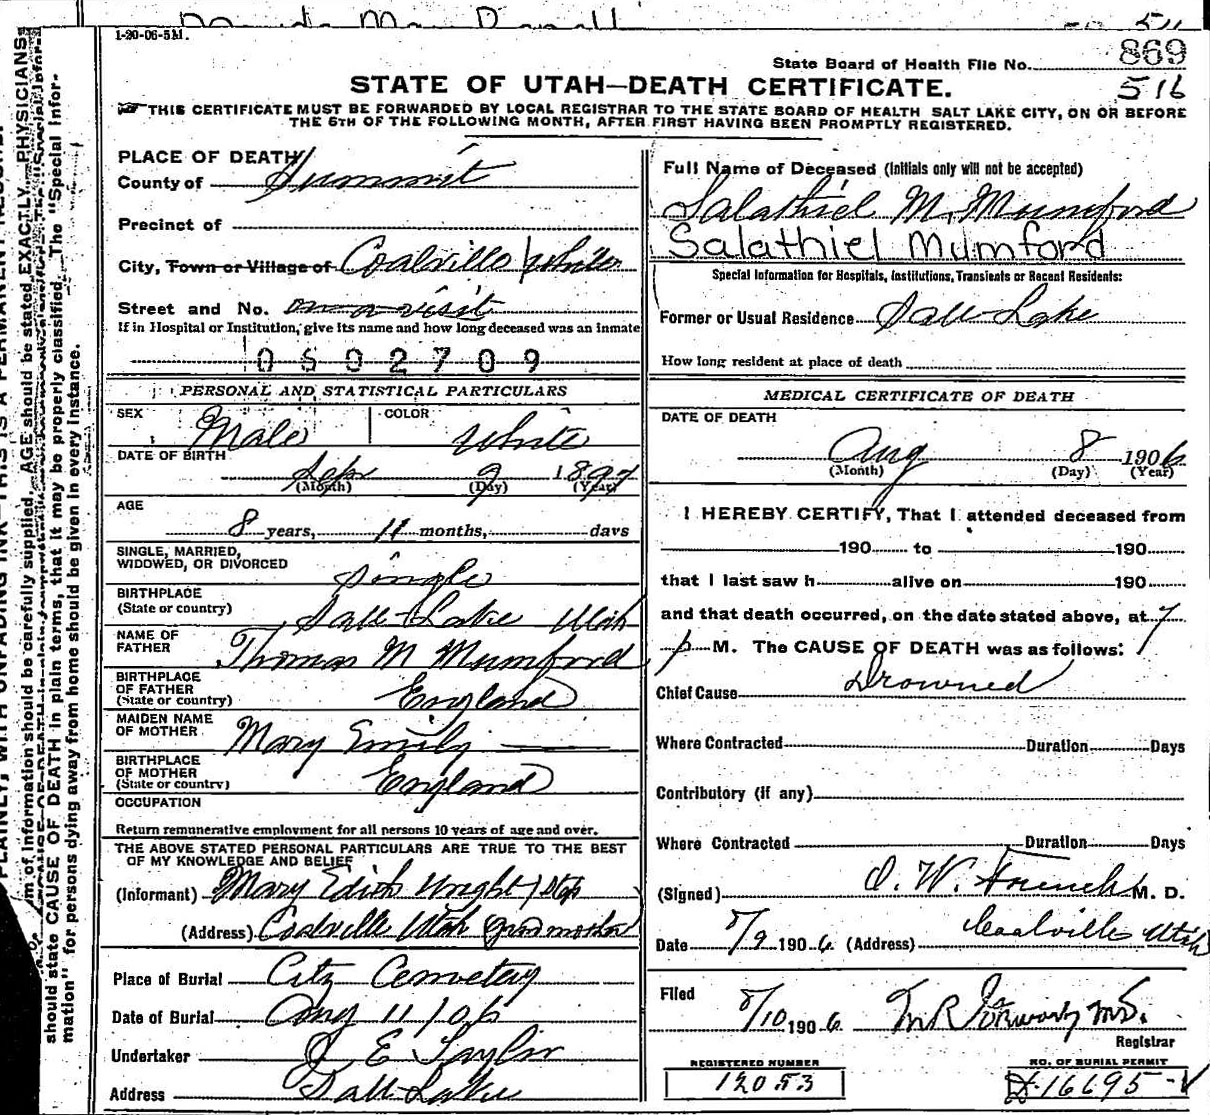 1-20-06-5M.
State Board of Health File No. 869
516
STATE OF UTAH—DEATH CERTIFICATE.
THIS CERTIFICATE MUST BE FORWARDED BY LOCAL REGISTRAR TO THE STATE BOARD OF HEALTH SALT LAKE CITY, ON OR BEFORE
THE 5TH OF THE FOLLOWING MONTH, AFTER FIRST HAVING BEEN PROMPTLY REGISTERED.
PLACE OF DEATH
County of Summit
Precinct of
City, Town or Village of Coalville while
Street and No. on a visit
If in Hospital or Institution, give its name and how long deceased was an inmate
0502709
PERSONAL AND STATISTICAL PARTICULARS
SEX Male COLOR White
DATE OF BIRTH Sep 9 1897
(Month) (Day) (Year)
AGE
8 years, 11 months, days
SINGLE, MARRIED,
WIDOWED, OR DIVORCED Single
BIRTHPLACE
(State or country) Salt Lake Utah
NAME OF
FATHER Thomas M Mumford
BIRTHPLACE
OF FATHER
(State or country) England
MAIDEN NAME
OF MOTHER Mary Emily
BIRTHPLACE
OF MOTHER
(State or country) England
OCCUPATION
Return remunerative employment for all persons 10 years of age and over.
THE ABOVE STATED PERSONAL PARTICULARS ARE TRUE TO THE BEST
OF MY KNOWLEDGE AND BELIEF
(Informant) Mary Edith Wright step
(Address) Coalville Utah grandmother
Place of Burial City Cemetery
Date of Burial Aug 11/06
Undertaker E Taylor
Address Salt Lake
Full Name of Deceased (Initials only will not be accepted)
Salathiel M. Mumford
Salathiel Mumford
Special Information for Hospitals, Institutions, Transients or Recent Residents:
Former or Usual Residence Salt Lake
How long resident at place of death
MEDICAL CERTIFICATE OF DEATH
DATE OF DEATH
Aug 8 1906
(Month) (Day) (Year)
I HEREBY CERTIFY, That I attended deceased from
190 to 190
that I last saw h alive on 190
and that death occurred, on the date stated above, at 7
p M. The CAUSE OF DEATH was as follows:
Chief Cause Drowned
Where Contracted Duration Days
Contributory (if any)
Where Contracted Duration Days
(Signed) O. W. French M. D.
Date 8/9 1906 (Address) Coalville Utah
Filed 8/10 1906
Registrar
REGISTERED NUMBER
12053
NO. OF BURIAL PERMIT
16695
AGE should be stated EXACTLY. PHYSICIANS
should state CAUSE OF DEATH in plain terms, that it may be properly classified. The "Special Infor-
mation" for persons dying away from home should be given in every instance.